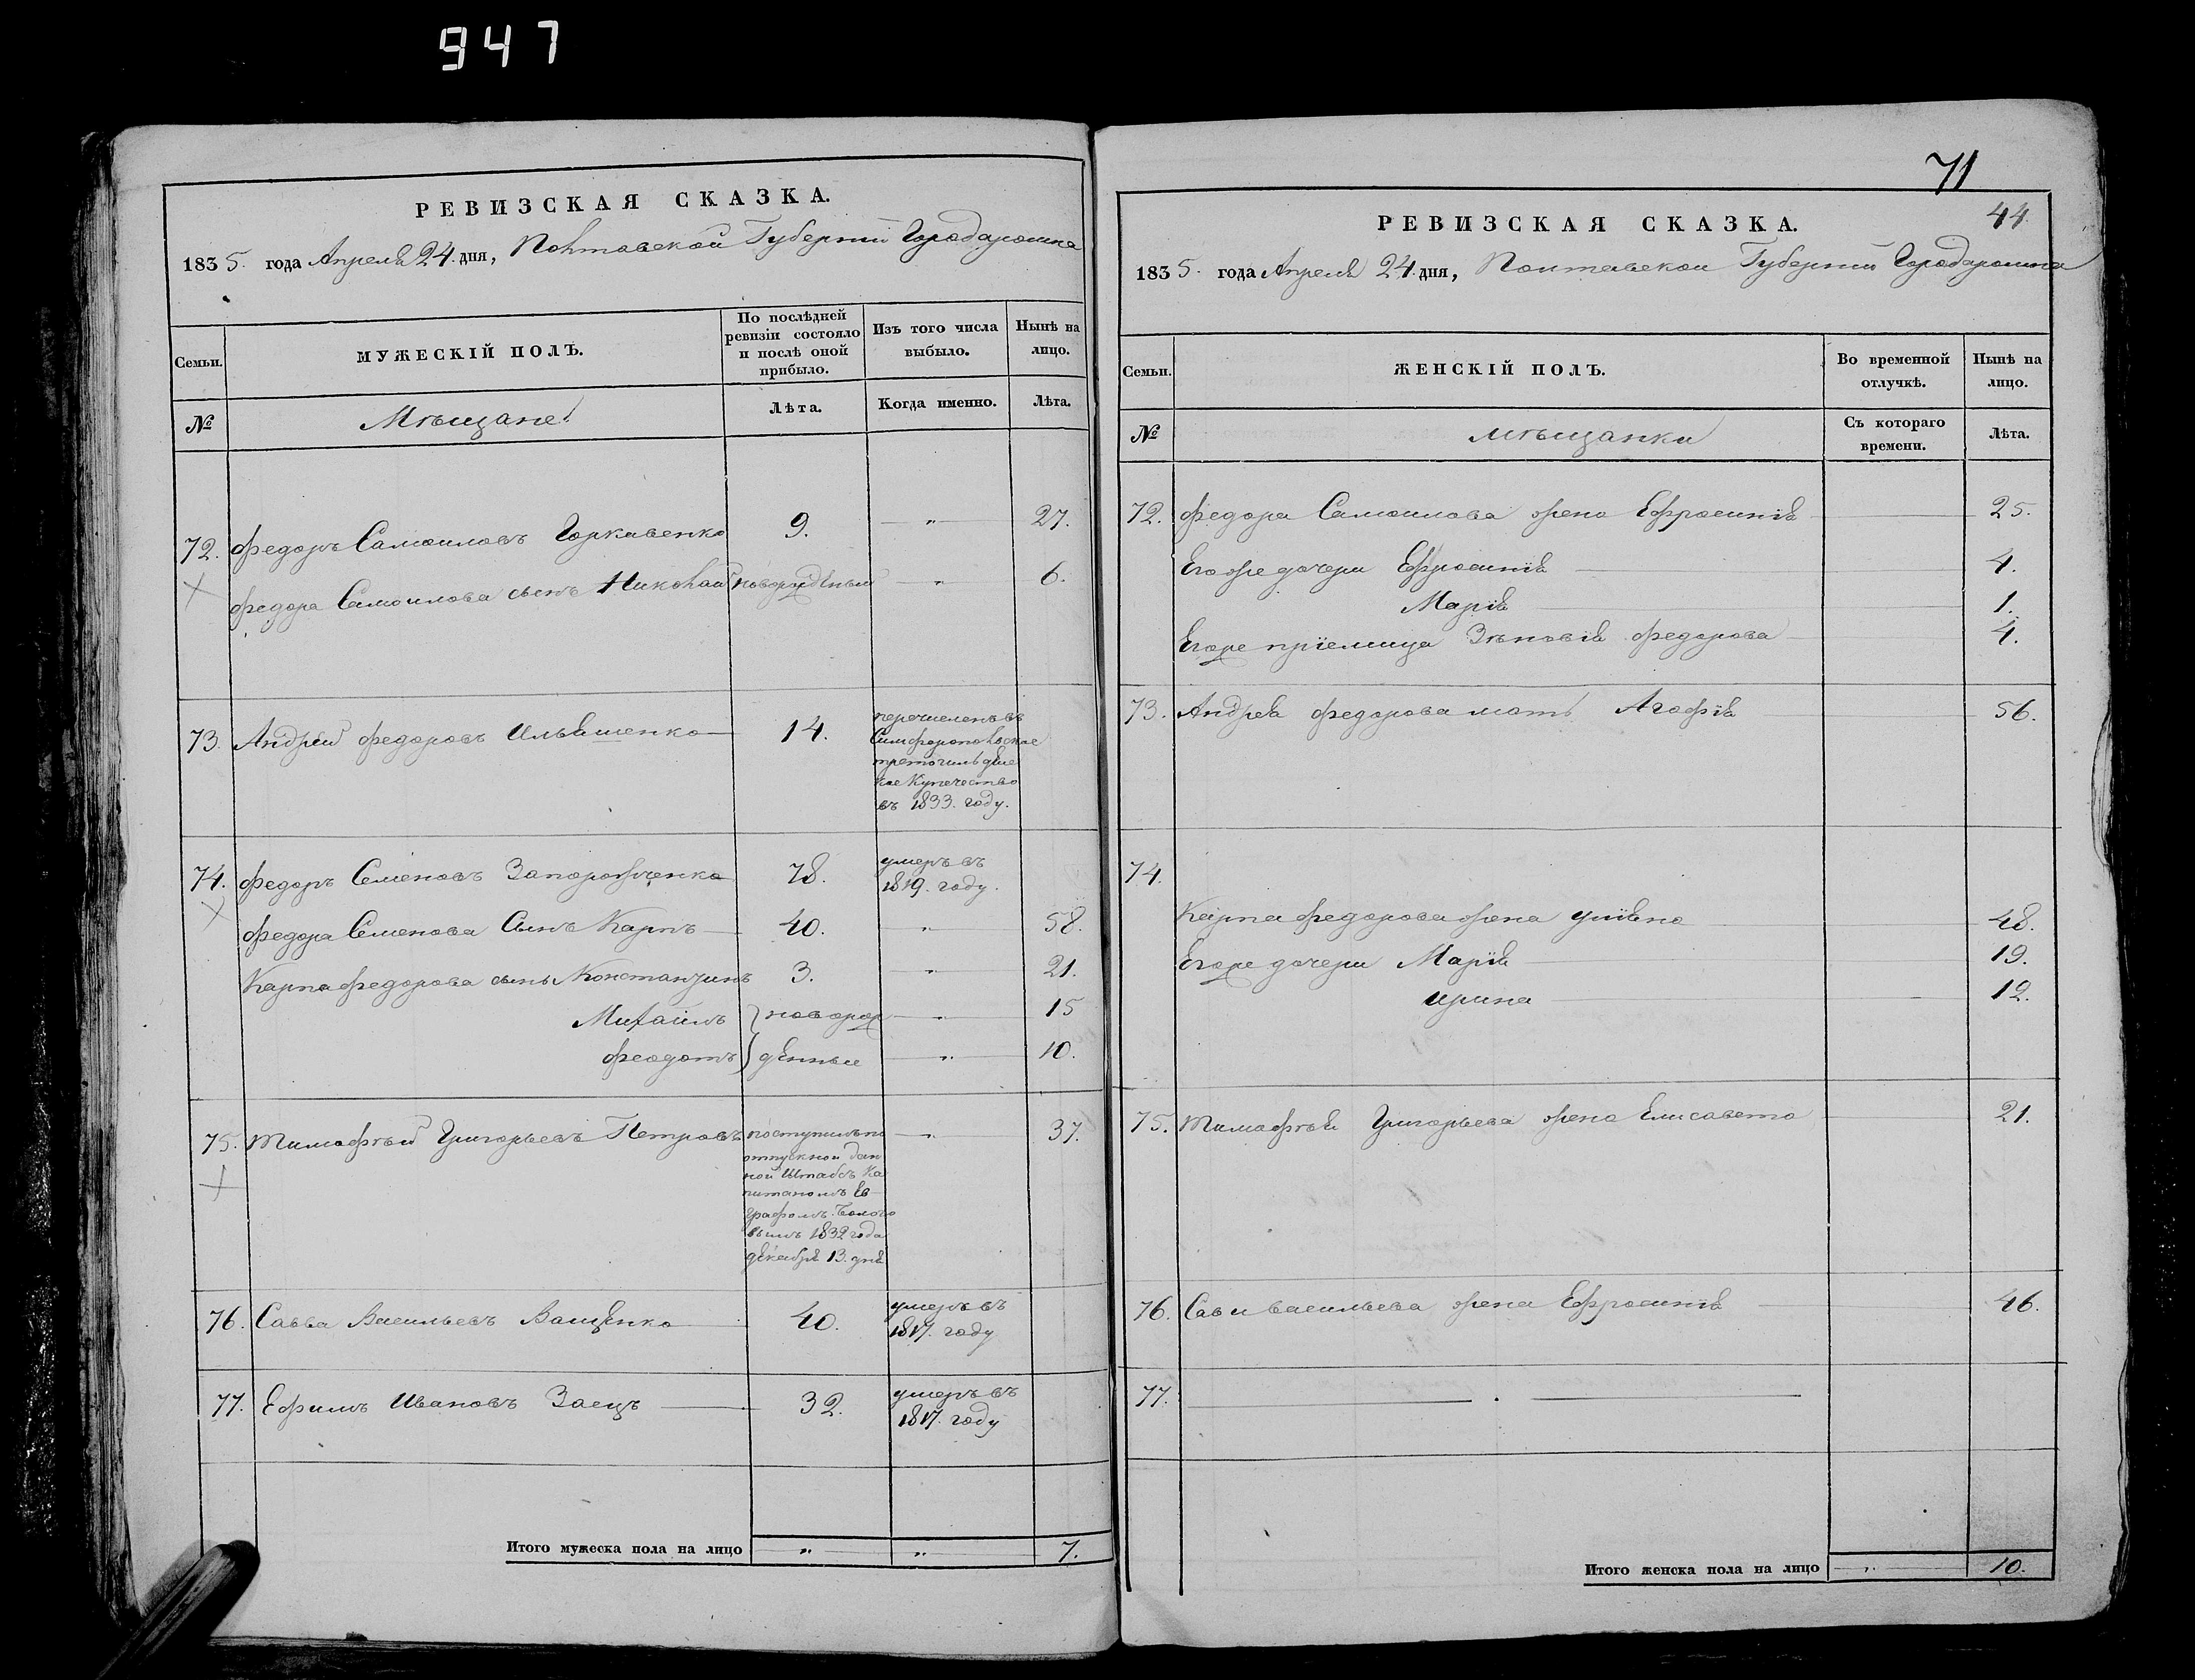 947
РЕВИЗСКАЯ СКАЗКА.
1835. года Апреля 24. дня, Полтавской Губернии Города
Семьи.
МУЖЕСКІЙ ПОЛЪ.
По послѣдней
ревизіи состояло
и послѣ оной
прибыло.
Изъ того числа
выбыло.
Нынѣ на
лицо.
№
Мѣщане!
Лѣта.
Когда именно.
Лѣта.
72. Федоръ Самоиловъ Горкавенко 9. " 27.
Федора Самоилова сынъ Николай новорожденый " 6.
73. Андрей Федоровъ Ильяшенко 14.
перечисленъ въ
Симферопольское
третогильдейс
кое Купечество
въ 1833. году.
74. Федоръ Семеновъ Запорожченко 78. умеръ въ
1819. году.
Федора Семенова Сынъ Карпъ 40. " 58.
Карпа Федорова сынъ Константинъ 3. " 21.
Михаилъ } новорож " 15
Феодотъ } денные " 10.
75. Тимофѣй Григорьевъ Петровъ поступилъ по " 37.
отпускной дан
ной Штабсъ Ка
питаномъ Ев
графомъ
вымъ 1832 года
декабря 13. дня
76. Савва Васильевъ Ващенко 40. умеръ въ
1817. году
77. Ефимъ Ивановъ Заецъ 32. умеръ въ
1817. году
Итого мужеска пола на лицо " " 7.
71
44.
РЕВИЗСКАЯ СКАЗКА.
1835. года Апреля 24. дня, Полтавской Губернии Города
Семьи.
ЖЕНСКІЙ ПОЛЪ.
Во временной
отлучкѣ.
Нынѣ на
лицо.
№
мѣщанки
Съ котораго
времени.
Лѣта.
72. Федора Самоилова жена Ефросинія 25.
Его же дочери Ефросинія 4.
Марія 1.
Его же пріемица Зѣновія Федорова 4.
73. Андрея Федорова мать Агофія 56.
74.
Карпа Федорова жена Уліяна 48.
Его же дочери Марія 19.
Ирина 12.
75. Тимофѣя Григорьева жена Елисавета 21.
76. Савы васильева жена Ефросинія 46.
77.
Итого женска пола на лицо " 10.